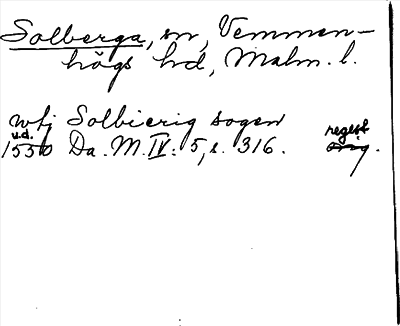 Solberga, sn, Vemmen-
högs hd, Malm. l.
wtj Solbierig sogen
u.d. regest
1550 Da. M. IV: 5, s. 316. orig.